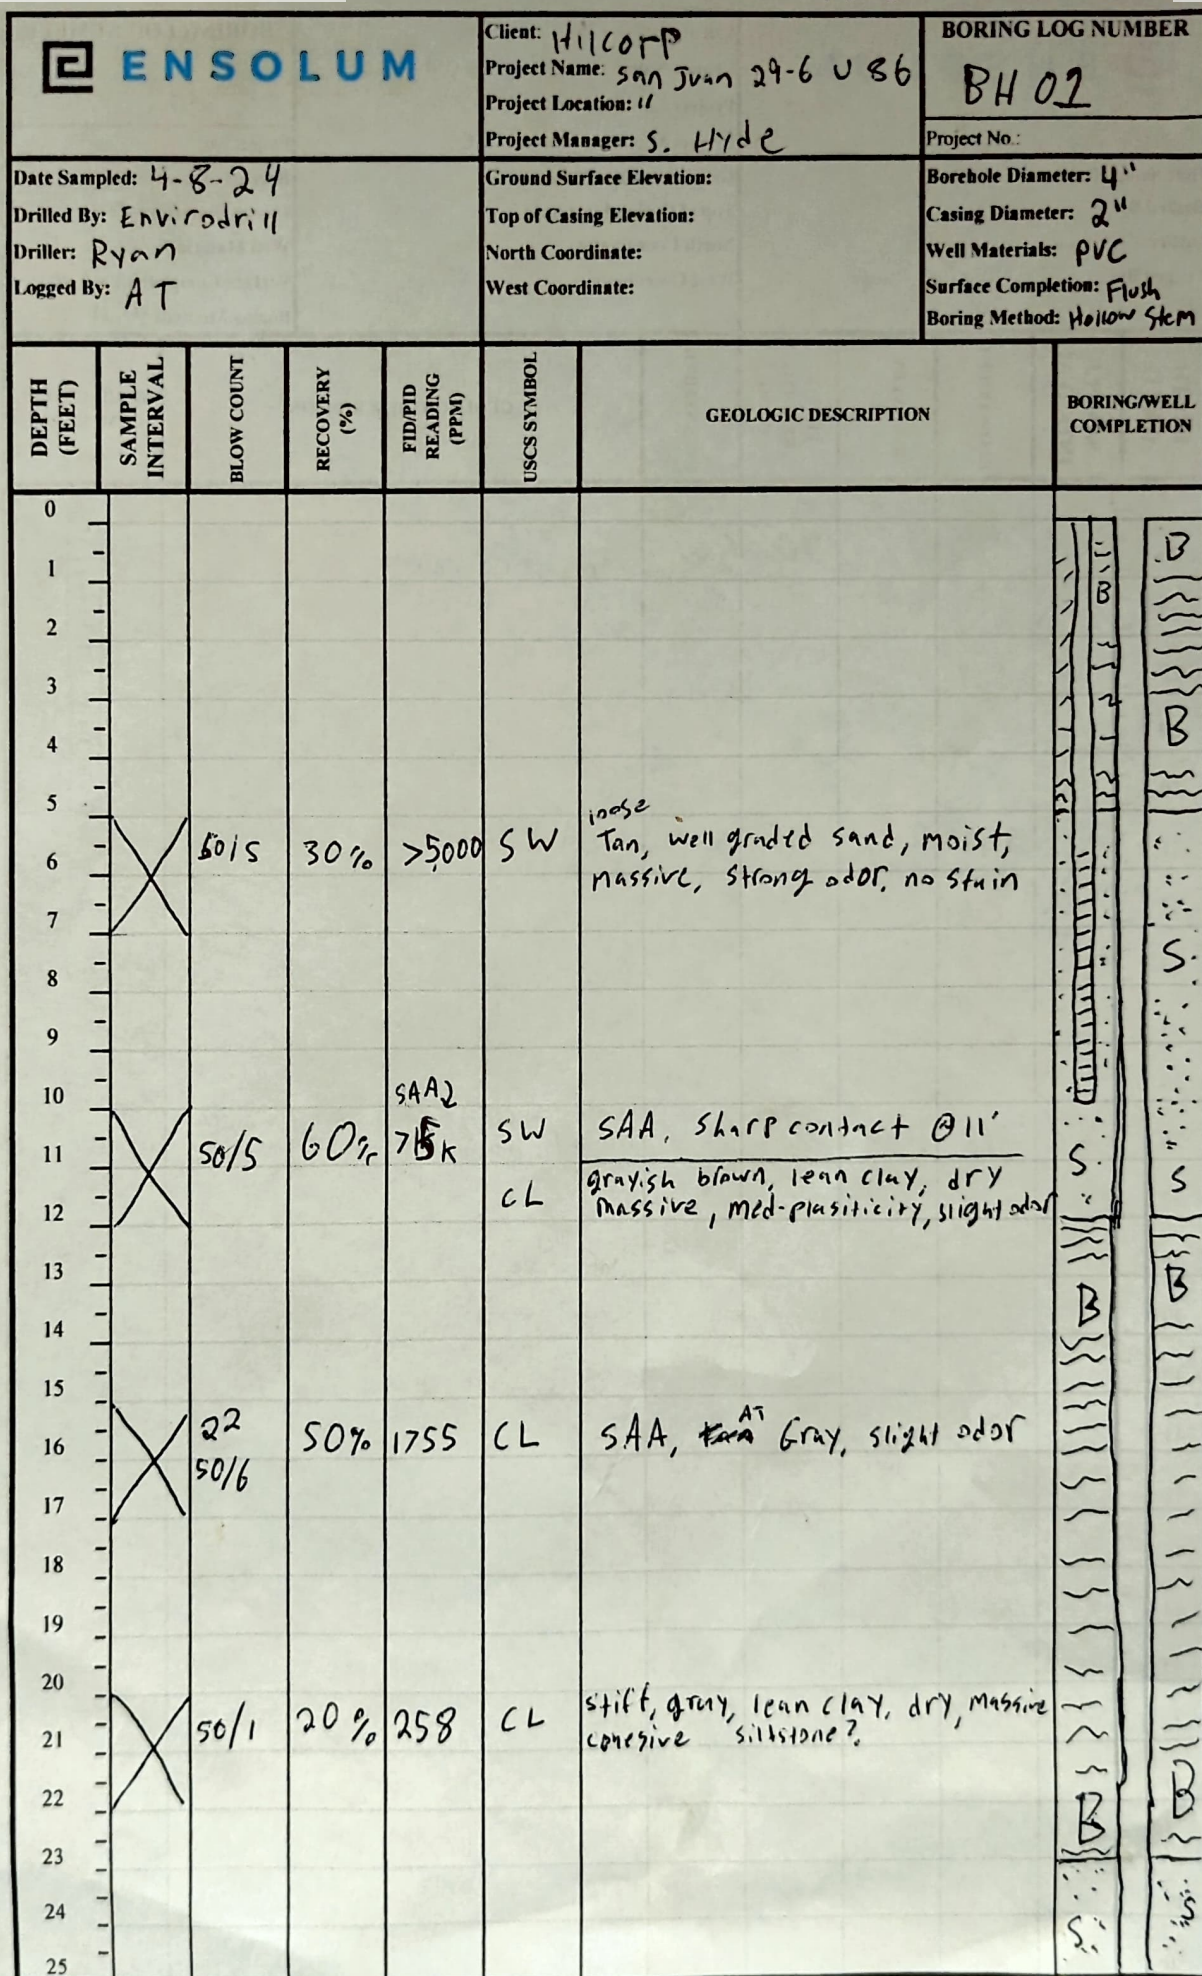 ENSOLUM
Client: Hilcorp
Project Name: San Juan 29-6 U 86
Project Location: "
Project Manager: S. Hyde
BORING LOG NUMBER
BH 01
Project No.:
Date Sampled: 4-8-24
Drilled By: Envirodrill
Driller: Ryan
Logged By: AT
Ground Surface Elevation:
Top of Casing Elevation:
North Coordinate:
West Coordinate:
Borehole Diameter: 4"
Casing Diameter: 2"
Well Materials: PVC
Surface Completion: Flush
Boring Method: Hollow Stem
DEPTH (FEET)
SAMPLE INTERVAL
BLOW COUNT
RECOVERY (%)
FID/PID READING (PPM)
USCS SYMBOL
GEOLOGIC DESCRIPTION
BORING/WELL COMPLETION
0
B
1
B
2
3
4
B
5
loose
6 50/5 30% >5000 SW Tan, well graded sand, moist,
massive, strong odor, no stain
7
8
S
9
10
SAA
11 50/5 60% SW SAA, sharp contact @ 11'
S S
CL grayish brown, lean clay, dry
12 massive, med-plasiticity, slight odor
13
B B
14
15
16 22 50% 1755 CL SAA, AT Gray, slight odor
50/6
17
18
19
20
stiff, gray, lean clay, dry, massive
21 50/1 20% 258 CL cohesive siltstone?
22
B B
23
24
S S
25